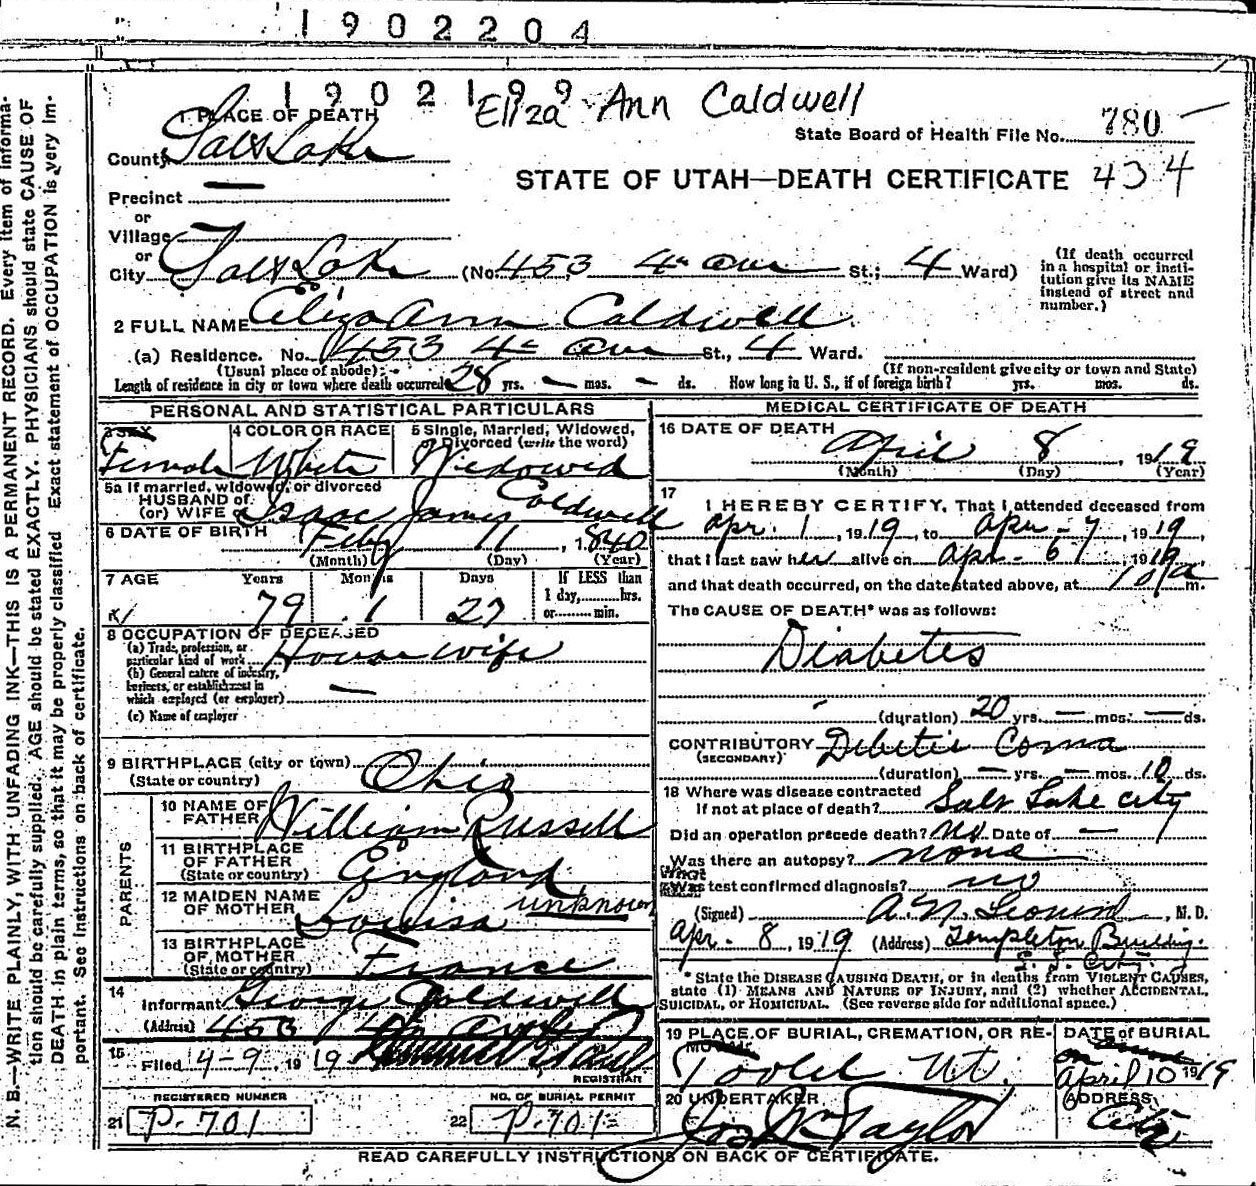 1902204
1902199
Eliza Ann Caldwell
1 PLACE OF DEATH
State Board of Health File No. 780
County Salt Lake
STATE OF UTAH—DEATH CERTIFICATE 434
Precinct —
or
Village —
or
City Salt Lake (No. 453 4th ave St.; 4 Ward)
(If death occurred in a hospital or insti-
tution give its NAME
instead of street and
number.)
2 FULL NAME Eliza Ann Caldwell
(a) Residence. No. 453 4th ave St., 4 Ward.
(Usual place of abode) (If non-resident give city or town and State)
Length of residence in city or town where death occurred 28 yrs. — mos. — ds. How long in U. S., if of foreign birth? yrs. mos. ds.
PERSONAL AND STATISTICAL PARTICULARS
3 SEX
Female
4 COLOR OR RACE
White
5 Single, Married, Widowed,
or Divorced (write the word)
Widowed
5a If married, widowed, or divorced
HUSBAND of
(or) WIFE of Isaac James Caldwell
6 DATE OF BIRTH
Feby 11, 1840
(Month) (Day) (Year)
7 AGE Years Months Days If LESS than
1 day, hrs.
or min.
79 1 27
8 OCCUPATION OF DECEASED
(a) Trade, profession, or
particular kind of work Housewife
(b) General nature of industry,
business, or establishment in
which employed (or employer) —
(c) Name of employer
9 BIRTHPLACE (city or town) Ohio
(State or country)
PARENTS
10 NAME OF
FATHER William Russell
11 BIRTHPLACE
OF FATHER England
(State or country)
12 MAIDEN NAME
OF MOTHER Louisa unknown
13 BIRTHPLACE
OF MOTHER France
(State or country)
14
Informant George Caldwell
(Address) 453 4th Ave
15
Filed 4-9, 1919
REGISTRAR
REGISTERED NUMBER
21 P-701
NO. OF BURIAL PERMIT
22 P-701
MEDICAL CERTIFICATE OF DEATH
16 DATE OF DEATH
April 8, 1919
(Month) (Day) (Year)
17
I HEREBY CERTIFY, That I attended deceased from
Apr. 1, 1919, to Apr - 7, 1919,
that I last saw her alive on Apr - 6, 1919
and that death occurred, on the date stated above, at 10 a m.
The CAUSE OF DEATH* was as follows:
Diabetes
(duration) 20 yrs. — mos. — ds.
CONTRIBUTORY Debetic Coma
(SECONDARY)
(duration) — yrs. — mos. 10 ds.
18 Where was disease contracted
If not at place of death? Salt Lake City
Did an operation precede death? No Date of —
Was there an autopsy? none
What test confirmed diagnosis? no
(Signed) , M. D.
Apr. 8, 1919 (Address) Templeton Building
S. L. City
* State the DISEASE CAUSING DEATH, or in deaths from VIOLENT CAUSES,
state (1) MEANS AND NATURE OF INJURY, and (2) whether ACCIDENTAL,
SUICIDAL, or HOMICIDAL. (See reverse side for additional space.)
19 PLACE OF BURIAL, CREMATION, OR RE-
MOVAL
Tooele Ut.
DATE of BURIAL
April 10 1919
20 UNDERTAKER
Jos Wm Taylor
ADDRESS
City
READ CAREFULLY INSTRUCTIONS ON BACK OF CERTIFICATE.
N. B.—WRITE PLAINLY, WITH UNFADING INK—THIS IS A PERMANENT RECORD. Every item of informa-
tion should be carefully supplied. AGE should be stated EXACTLY. PHYSICIANS should state CAUSE OF
DEATH in plain terms, so that it may be properly classified Exact statement of OCCUPATION is very im-
portant. See Instructions on back of certificate.